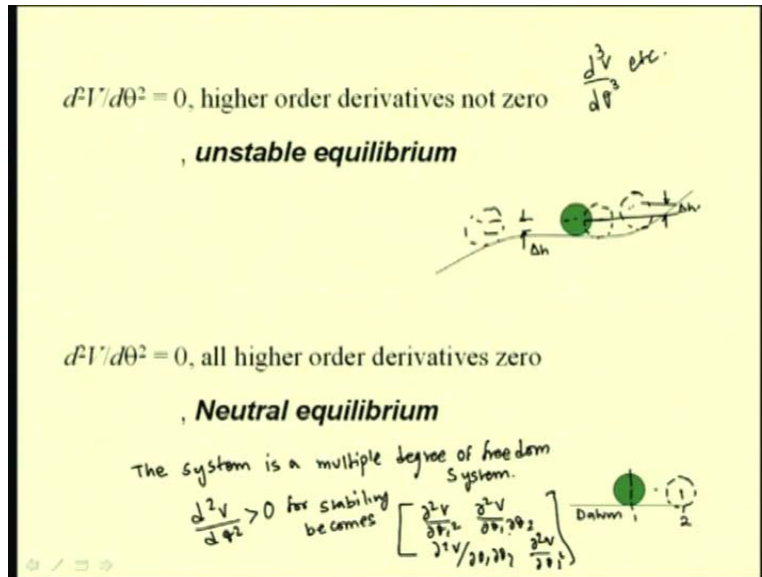 d³V/dθ³ etc.
d²V/dθ² = 0, higher order derivatives not zero
, unstable equilibrium
Δh
Δh
d²V/dθ² = 0, all higher order derivatives zero
, Neutral equilibrium
The system is a multiple degree of freedom
System.
d²v/dφ² > 0 for stability
becomes
[ ∂²v/∂θ₁² ∂²v/∂θ₁∂θ₂
∂²v/∂θ₁∂θ₂ ∂²v/∂θ₂² ]
Datum 1 2